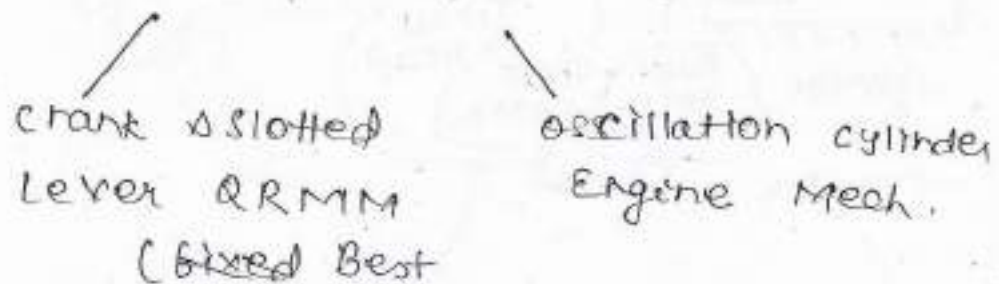 Crank & Slotted
Lever QRMM
(fixed Best
oscillation cylinder
Engine Mech.